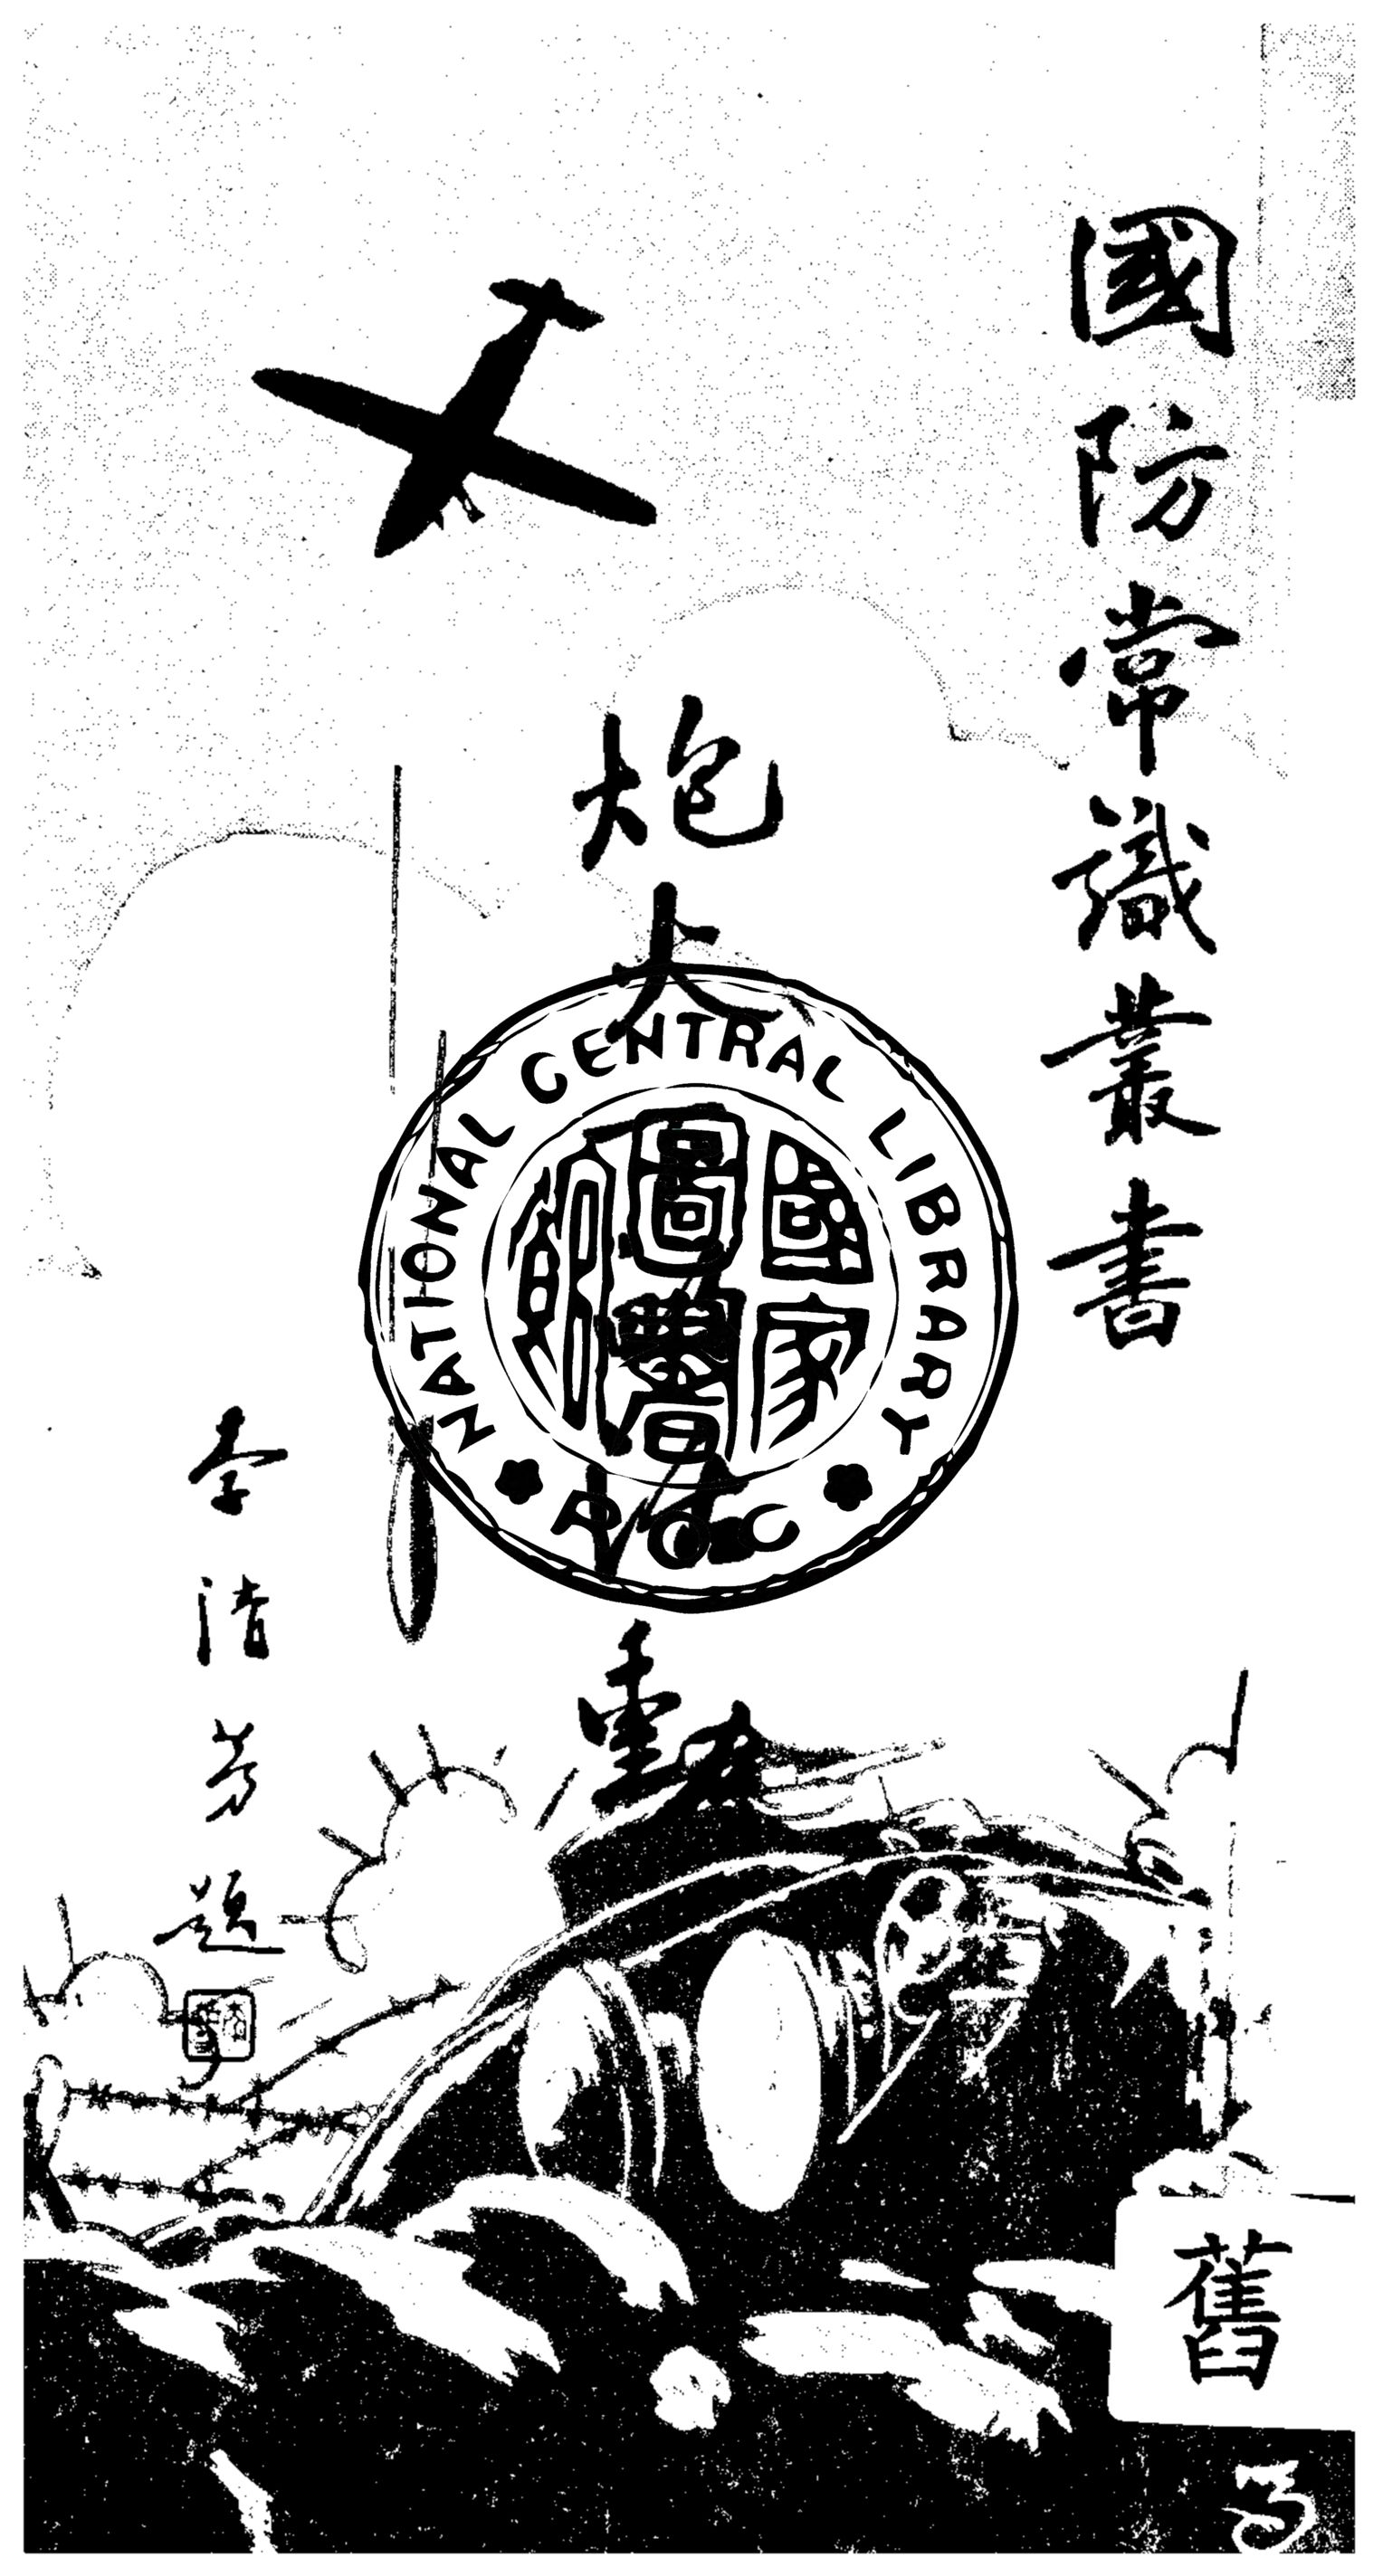 國防常識叢書
炮火動
李清芳題
NATIONAL CENTRAL LIBRARY
國家圖書館
ROC
舊